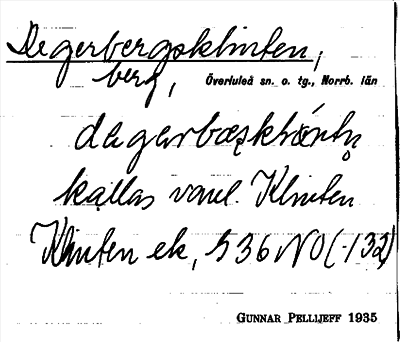 Degerbergsklinten,
berg, Överluleå sn. o. tg., Norrb. län
kallas vanl. Klinten
Klinten ek, S 36 NO (-132)
GUNNAR PELLIJEFF 1935